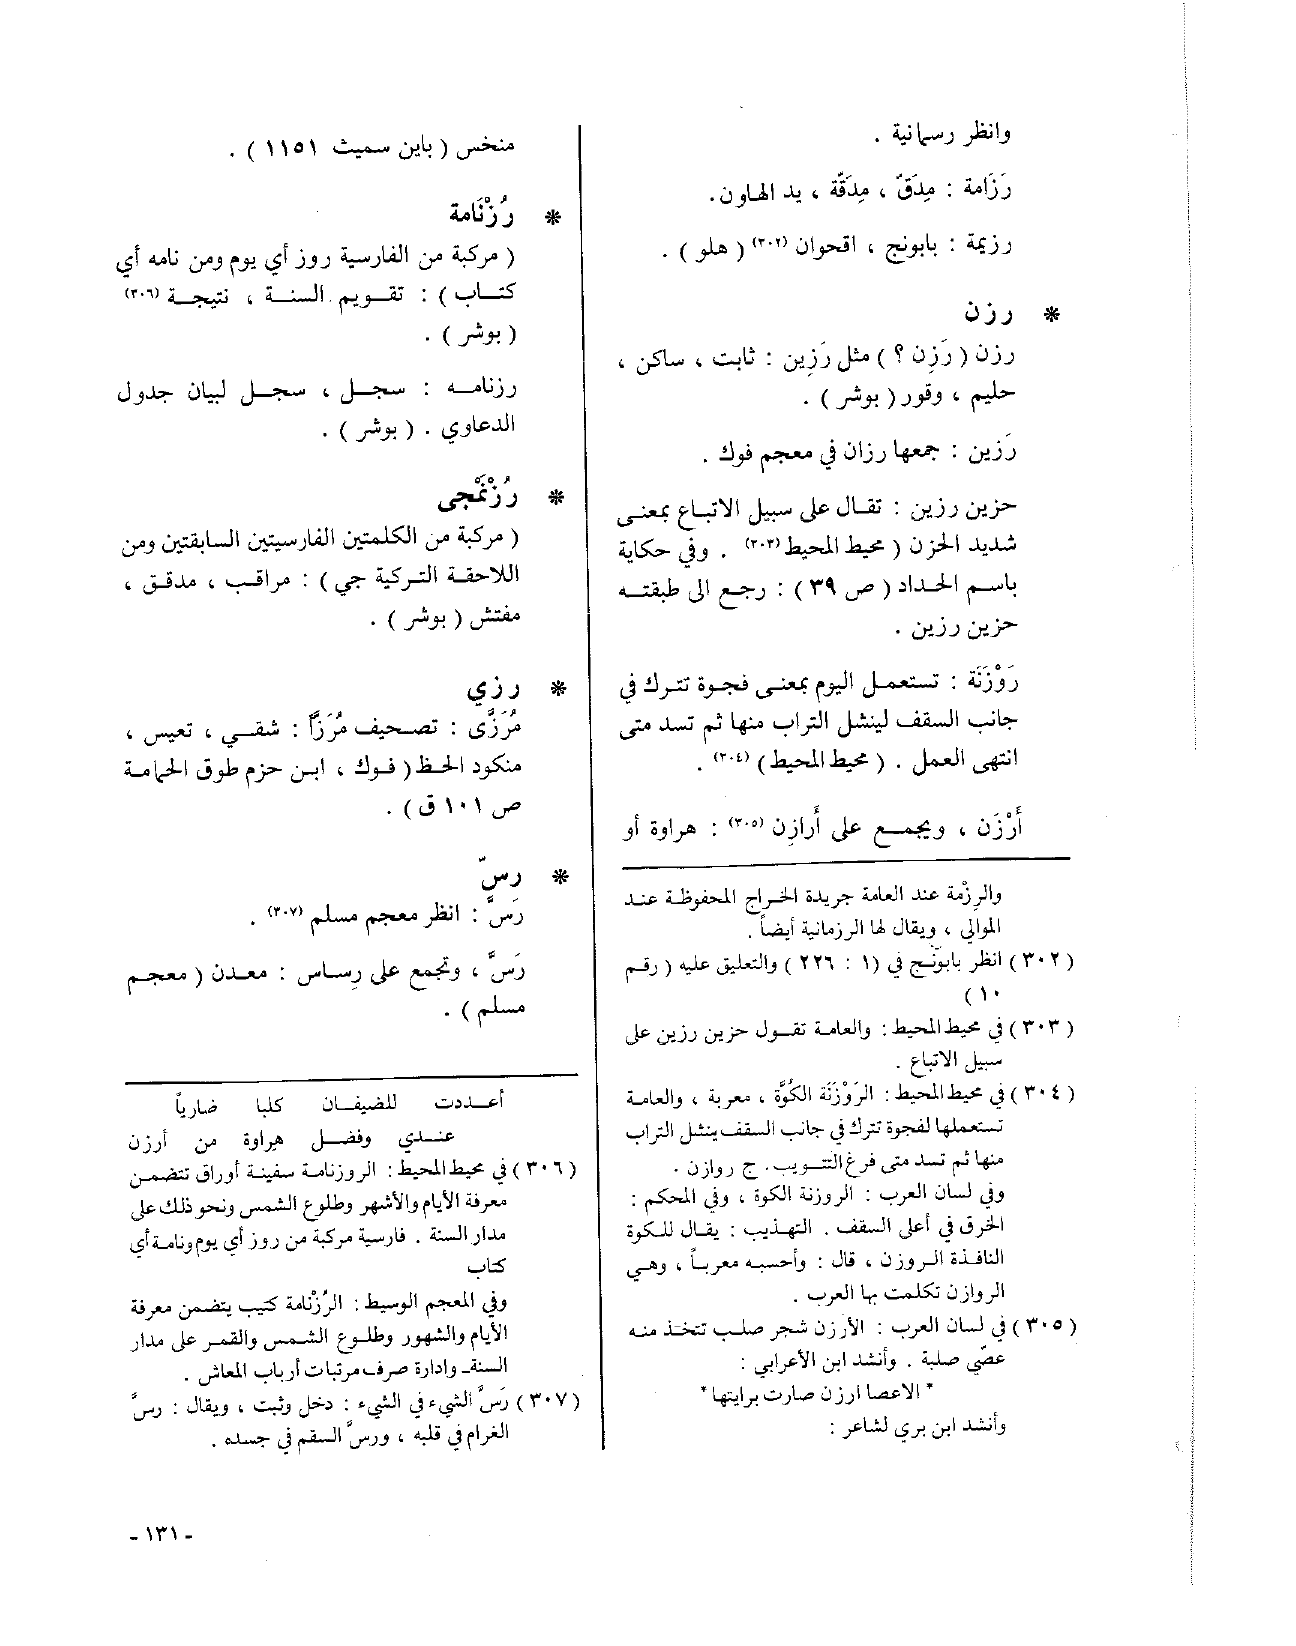 وانظر رسمانية .
رَزَامة : مِدَقّ ، مِدَقَّة ، يد الهاون.
رزيمة : بابونج ، اقحوان (٣٠٢) ( هلو ) .
* رزن
رزن ( رَزِن ؟ ) مثل رَزِين : ثابت ، ساكن ،
حليم ، وقور ( بوشر ) .
رَزين : جمعها رزان في معجم فوك .
حزين رزين : تقال على سبيل الاتباع بمعنى
شديد الحزن ( محيط المحيط (٣٠٣) . وفي حكاية
باسم الحداد ( ص ٣٩ ) : رجع الى طبقته
حزين رزين .
رَوْزَنَة : تستعمل اليوم بمعنى فجوة تترك في
جانب السقف لينشل التراب منها ثم تسد متى
انتهى العمل . ( محيط المحيط ) (٣٠٤) .
أَرْزَن ، ويجمع على أَرازِن (٣٠٥) : هراوة أو
والرِزْمة عند العامة جريدة الخراج المحفوظة عند
الموالي ، ويقال لها الرزمانية أيضاً .
( ٣٠٢ ) انظر بابونَج في (١ : ٢٢٦ ) والتعليق عليه ( رقم
١٠ )
( ٣٠٣ ) في محيط المحيط : والعامة تقول حزين رزين على
سبيل الاتباع .
( ٣٠٤ ) في محيط المحيط : الرَوْزَنَة الكُوَّة ، معربة ، والعامة
تستعملها لفجوة تترك في جانب السقف ينشل التراب
منها ثم تسد متى فرغ التتويب . ج روازن .
وفي لسان العرب : الروزنة الكوة ، وفي المحكم :
الخرق في أعلى السقف . التهذيب : يقال للكوة
النافذة الروزن ، قال : وأحسبه معرباً ، وهي
الروازن تكلمت بها العرب .
( ٣٠٥ ) في لسان العرب : الأرزن شجر صلب تتخذ منه
عصّي صلبة . وأنشد ابن الأعرابي :
* الاعصا ارزن صارت برايتها *
وأنشد ابن بري لشاعر :
منخس ( باين سميث ١١٥١ ) .
* رُزْنَامة
( مركبة من الفارسية روز أي يوم ومن نامه أي
كتاب ) : تقويم السنة ، نتيجة (٣٠٦)
( بوشر ) .
رزنامه : سجل ، سجل لبيان جدول
الدعاوي . ( بوشر ) .
* رُزْنَمْجى
( مركبة من الكلمتين الفارسيتين السابقتين ومن
اللاحقة التركية جي ) : مراقب ، مدقق ،
مفتش ( بوشر ) .
* رزي
مُرَزًّى : تصحيف مُرَزَّأ : شقي ، تعيس ،
منكود الحظ ( فوك ، ابن حزم طوق الحمامة
ص ١٠١ ق ) .
* رسّ
رَسَّ : انظر معجم مسلم (٣٠٧) .
رَسَّ ، وتجمع على رِساس : معدن ( معجم
مسلم ) .
أعددت للضيفان كلبا ضارياً
عندي وفضل هراوة من أرزن
( ٣٠٦ ) في محيط المحيط : الروزنامة سفينة أوراق تتضمن
معرفة الأيام والأشهر وطلوع الشمس ونحو ذلك على
مدار السنة . فارسية مركبة من روز أي يوم ونامة أي
كتاب
وفي المعجم الوسيط : الرُزْنامة كتيب يتضمن معرفة
الأيام والشهور وطلوع الشمس والقمر على مدار
السنة ـ وادارة صرف مرتبات أرباب المعاش .
( ٣٠٧ ) رَسَّ الشيء في الشيء : دخل وثبت ، ويقال : رسَّ
الغرام في قلبه ، ورسَّ السقم في جسده .
- ١٣١ -